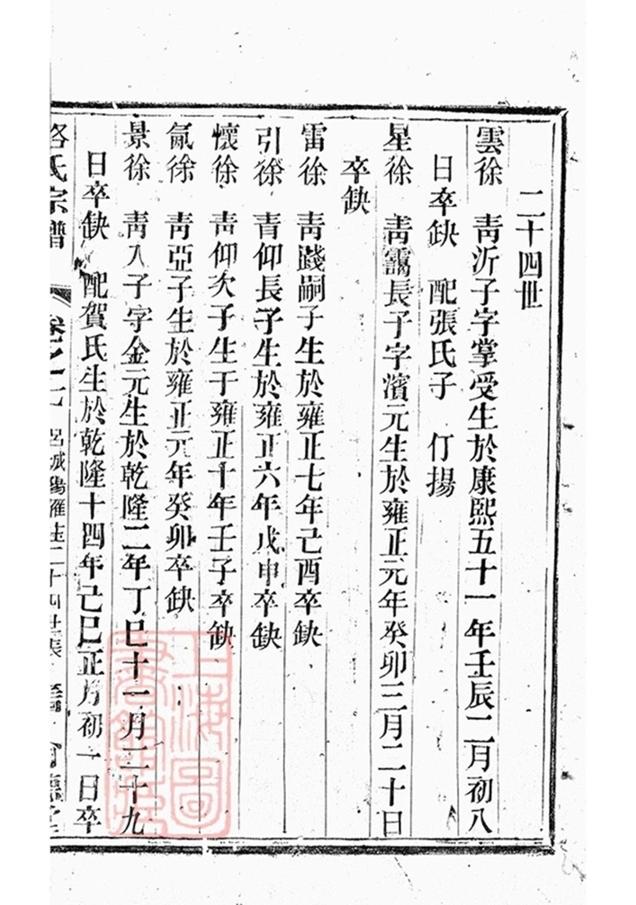 二十四世
雲徐 靑沂子字掌受生於康熙五十一年壬辰二月初八
日卒缺 配張氏子 仃揚
星徐 靑靄長子字濱元生於雍正元年癸卯三月二十日
卒缺
雷徐 靑踐嗣子生於雍正七年己酉卒缺
引徐 靑仰長子生於雍正六年戊申卒缺
懷徐 靑仰次子生于雍正十年壬子卒缺
氤徐 靑亞子生於雍正元年癸卯卒缺
景徐 靑入子字金元生於乾隆二年丁巳十一月二十九
日卒缺 配賀氏生於乾隆十四年己巳正月初一日卒
氏宗譜 卷之 呂城 二十四世
上海圖書館藏